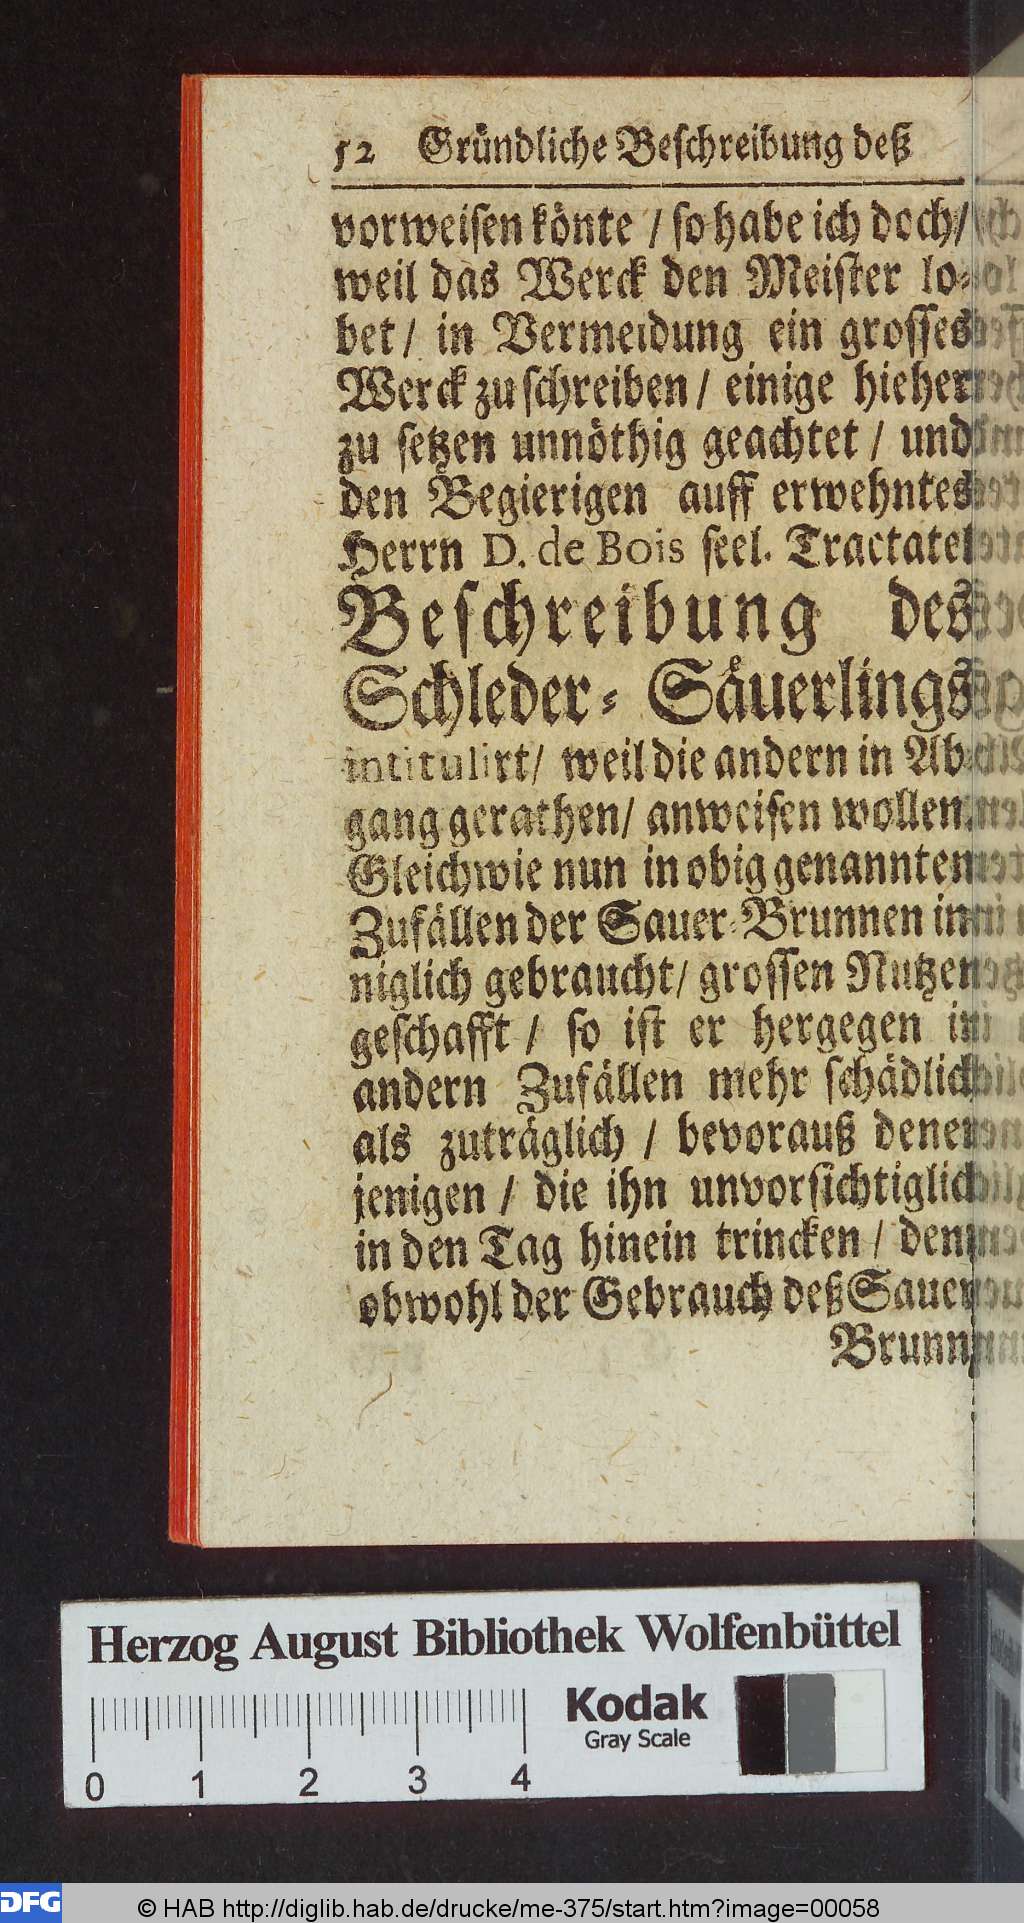 52 Gründliche Beschreibung deß
vorweisen könte / so habe ich doch /
weil das Werck den Meister lo-
bet / in Vermeidung ein grosses
Werck zu schreiben / einige hieher
zu setzen unnöthig geachtet / und
den Begierigen auff erwehntes
Herrn D. de Bois seel. Tractatel
Beschreibung des
Schleder-Säuerlings
intitulirt / weil die andern in Ab-
gang gerathen / anweisen wollen.
Gleichwie nun in obig genannten
Zufällen der Sauer-Brunnen in
niglich gebraucht / grossen Nutzen
geschafft / so ist er hergegen in
andern Zufällen mehr schädlich
als zuträglich / bevorauß denen
jenigen / die ihn unvorsichtiglich
in den Tag hinein trincken / denn
obwohl der Gebrauch deß Sauer
Brunn
Herzog August Bibliothek Wolfenbüttel
Kodak
Gray Scale
0 1 2 3 4
DFG © HAB http://diglib.hab.de/drucke/me-375/start.htm?image=00058